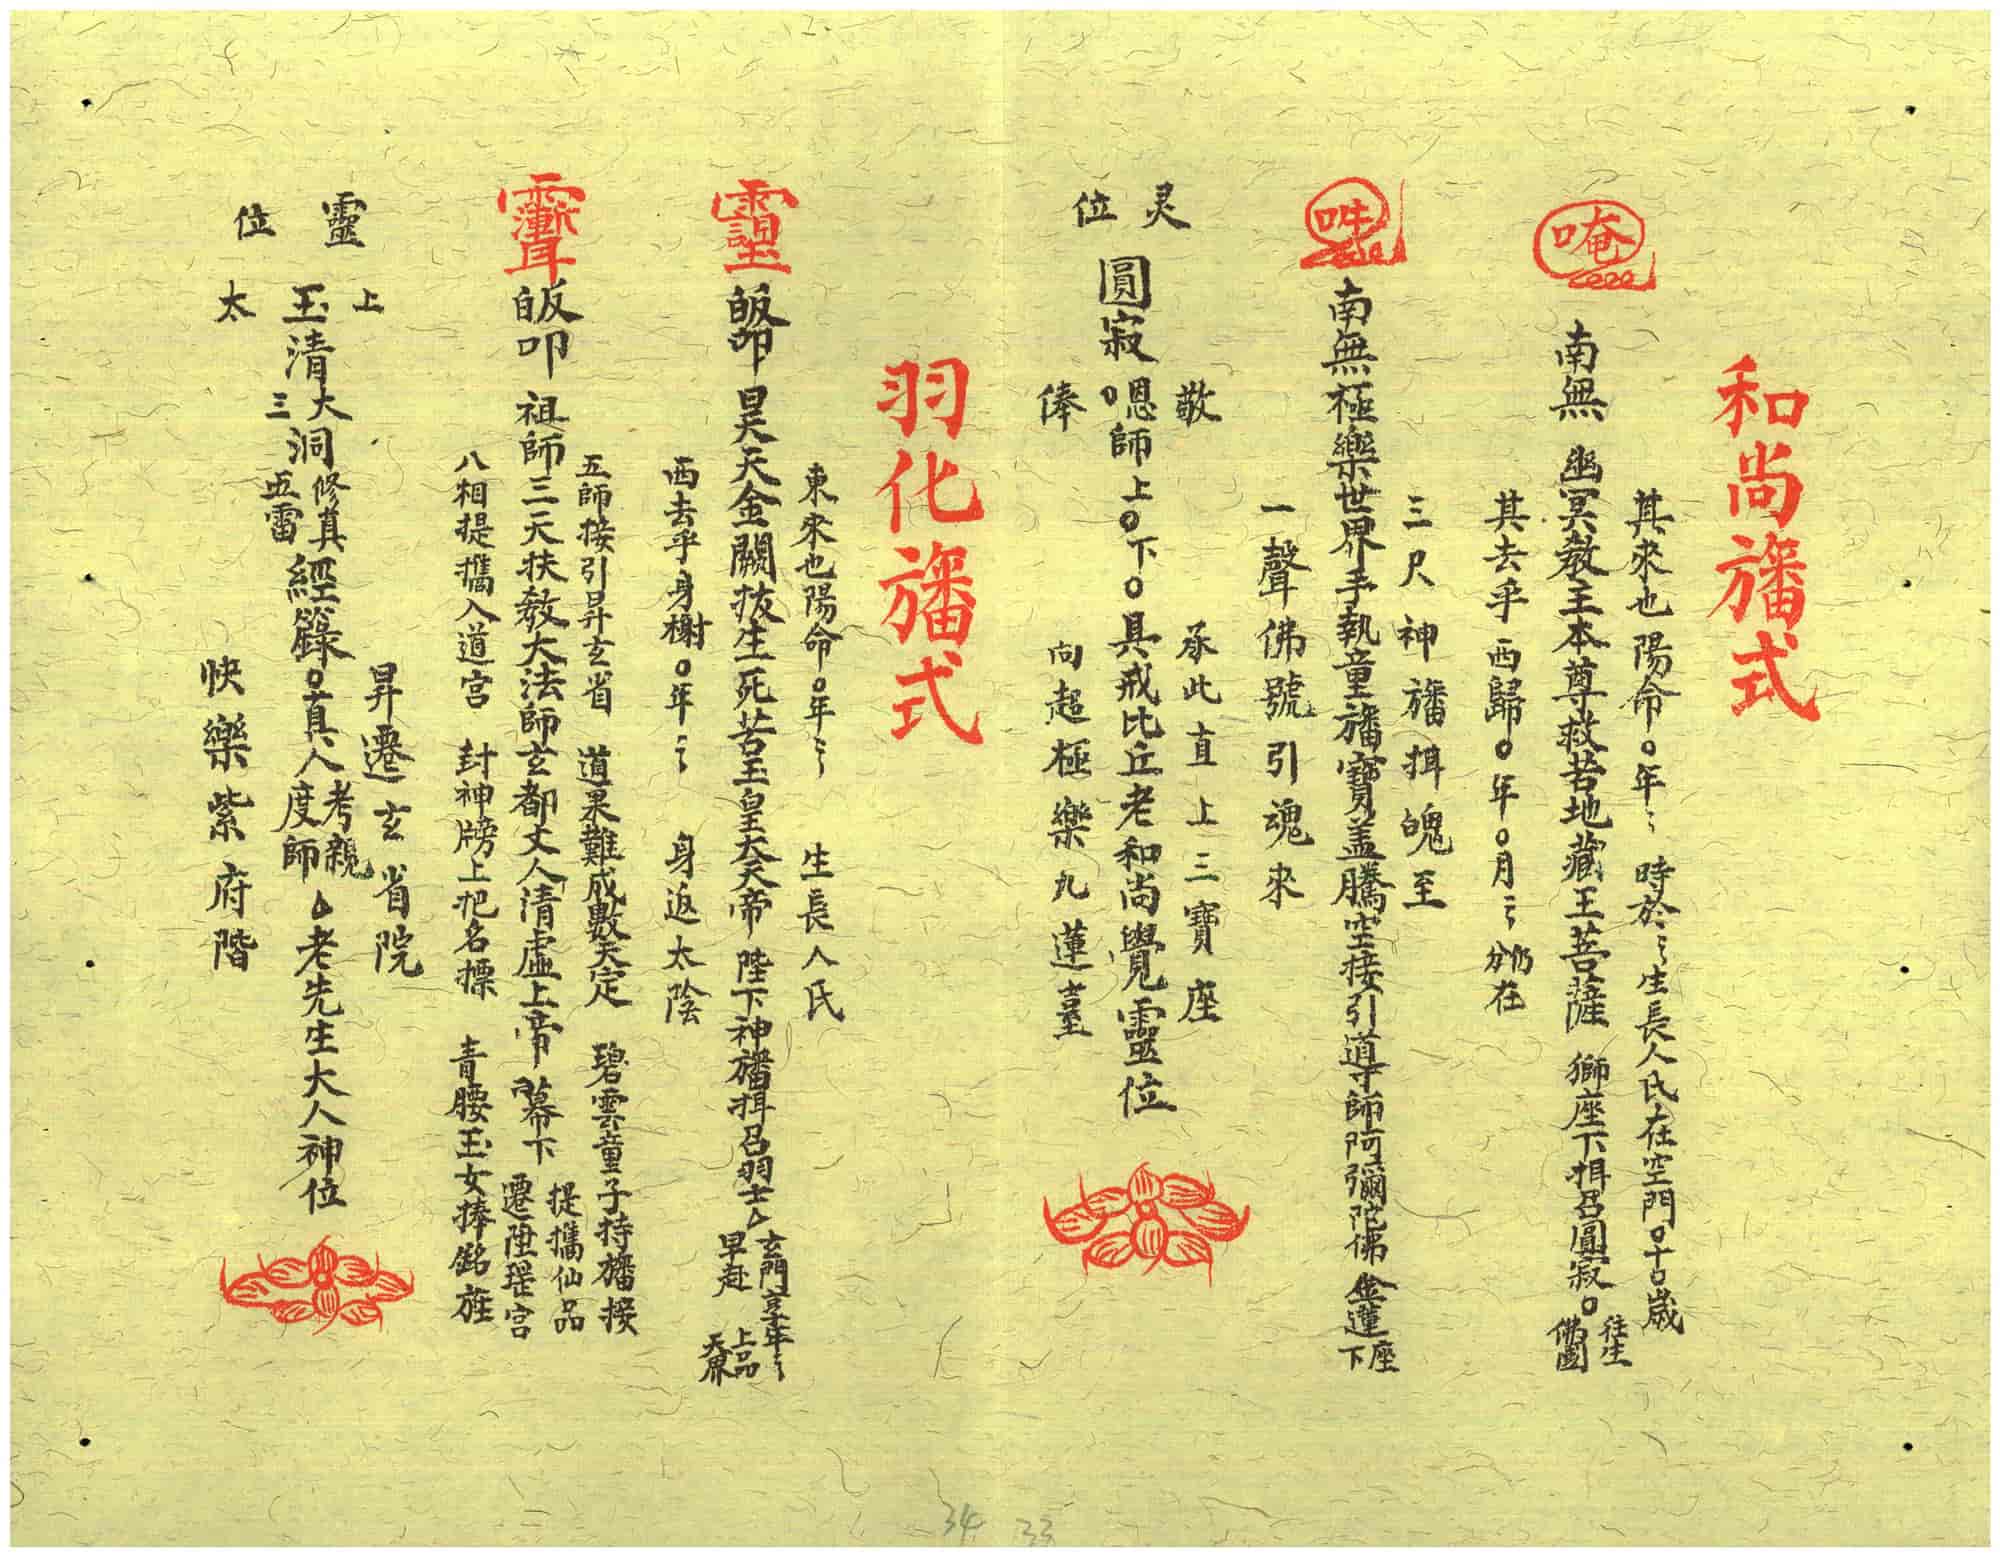 和尚旛式
其來也陽命〇年〻 時於〻生長人氏在空門〇十〇歲
唵 南無 幽冥教主本尊救苦地藏王菩薩 獅座下捐召圓寂〇 往生佛國
其去乎西歸〇年〇月〻仍在
三尺神旛捐魄至
南無極樂世界手執童旛寶盖騰空接引導師阿彌陀佛 金蓮座下
一聲佛號引魂來
灵 敬 承此直上三寶座
圓寂〇嗯師上〇下〇具戒比丘老和尚覺靈位
位 俸 向超極樂九蓮臺
羽化旛式
東來也陽命〇年〻 生長人氏
皈命 昊天金闕拔生死苦玉皇大天帝 陛下神旛捐召羽士△ 玄門享年〻早赴 上品天界
西去乎身榭〇年〻 身返太陰
五師接引昇玄省 道果難成數天定 碧雲童子持旛接
皈叩 祖師三天扶教大法師玄都丈人清虛上帝 幕下 提攜仙品 遷陞瑤宮
八相提攜入道宫 封神牓上把名標 青腰玉女捧銘旌
靈 上 昇遷玄省院
玉清大洞 三 修真 五雷 經籙〇真人 考親 度師 △老先生大人神位
位 太 快樂紫府階
34 33